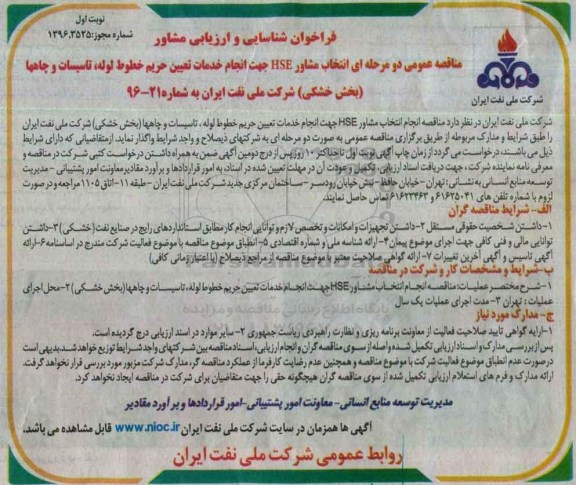 نوبت اول
شماره مجوز:۱۳۹۶,۳۵۲۵
فراخوان شناسایی و ارزیابی مشاور
مناقصه عمومی دو مرحله ای انتخاب مشاور HSE جهت انجام خدمات تعیین حریم خطوط لوله، تاسیسات و چاهها
(بخش خشکی) شرکت ملی نفت ایران به شماره ۲۱-۹۶
شرکت ملی نفت ایران
شرکت ملی نفت ایران در نظر دارد مناقصه انجام انتخاب مشاور HSE جهت انجام خدمات تعیین حریم خطوط لوله ، تاسیسات و چاهها (بخش خشکی) شرکت ملی نفت ایران
را طبق شرایط و مدارک مربوطه از طریق برگزاری مناقصه عمومی به صورت دو مرحله ای به شرکتهای ذیصلاح و واجد شرایط واگذار نماید. از متقاضیانی که دارای شرایط
ذیل می باشند، درخواست می گردد از زمان چاپ آگهی نوبت اول تا حداکثر ۱۰ روز پس از درج دومین آگهی ضمن به همراه داشتن درخواست کتبی شرکت در مناقصه و
معرفی نامه نماینده شرکت ، جهت دریافت اسناد ارزیابی، تکمیل و عودت آن در مهلت تعیین شده در اسناد، به امور قراردادها و برآورد مقادیر معاونت امور پشتیبانی - مدیریت
توسعه منابع انسانی به نشانی: تهران - خیابان حافظ - نبش خیابان رودسر - ساختمان مرکزی جدید شرکت ملی نفت ایران - طبقه ۱۱- اتاق ۱۱۰۵ مراجعه و در صورت
لزوم با شماره تلفن های ۶۱۶۲۵۰۴۱ و ۶۱۶۲۳۴۶۳ تماس حاصل نمایند.
الف- شرایط مناقصه گران
۱-داشتن شخصیت حقوقی مستقل ۲-داشتن تجهیزات و امکانات و تخصص لازم و توانایی انجام کار مطابق استانداردهای رایج در صنایع نفت (خشکی) ۳-داشتن
توانایی مالی و فنی کافی جهت اجرای موضوع پیمان ۴- ارائه شناسه ملی و شماره اقتصادی ۵- انطباق موضوع مناقصه با موضوع فعالیت شرکت مندرج در اساسنامه ۶-ارائه
آگهی تاسیس و آگهی آخرین تغییرات ۷-ارائه گواهی صلاحیت معتبر با موضوع مناقصه از مراجع ذیصلاح (با اعتبار زمانی کافی)
ب-شرایط و مشخصات کار و شرکت در مناقصه
۱-شرح مختصر عملیات: مناقصه انجام انتخاب مشاور HSE جهت انجام خدمات تعیین حریم خطوط لوله، تاسیسات و چاهها (بخش خشکی) ۲-محل اجرای
عملیات : تهران ۳- مدت اجرای عملیات یک سال
ج- مدارک مورد نیاز
۱-ارایه گواهی تایید صلاحیت فعالیت از معاونت برنامه ریزی و نظارت راهبردی ریاست جمهوری ۲- سایر موارد در اسناد ارزیابی درج گردیده است.
پس از بررسی مدارک و اسناد ارزیابی تکمیل شده واصله از سوی مناقصه گران و انجام ارزیابی، اسناد مناقصه بین شرکتهای واجد شرایط توزیع خواهد شد. بدیهی است
در صورت عدم انطباق موضوع فعالیت شرکت با موضوع مناقصه و همچنین عدم رضایت کارفرما از عملکرد مناقصه گر، مدارک شرکت مزبور مورد بررسی قرار نخواهد گرفت.
ارائه مدارک و فرم های استعلام ارزیابی تکمیل شده از سوی مناقصه گران هیچگونه حقی را جهت متقاضیان برای شرکت در مناقصه ایجاد نخواهد کرد.
مدیریت توسعه منابع انسانی- معاونت امور پشتیبانی-امور قراردادها و برآورد مقادیر
آگهی ها همزمان در سایت شرکت ملی نفت ایران www.nioc.ir قابل مشاهده می باشد.
روابط عمومی شرکت ملی نفت ایران